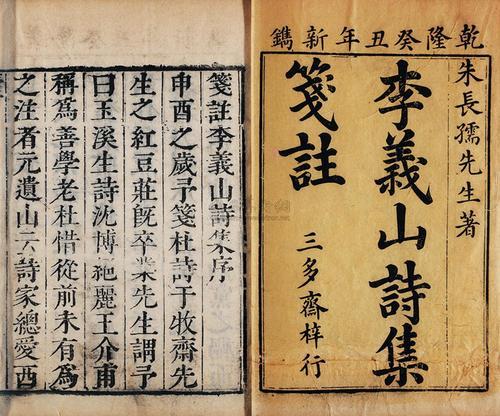 乾隆癸丑年新鐫
朱長孺先生著
李義山詩集
箋註
三多齋梓行
箋註李義山詩集序
申酉之歲予箋杜詩于牧齋先
生之紅豆莊旣卒業先生謂予
曰玉溪生詩沈博絶麗王介甫
稱爲善學老杜惜從前未有爲
之注者元遺山云詩家總愛西